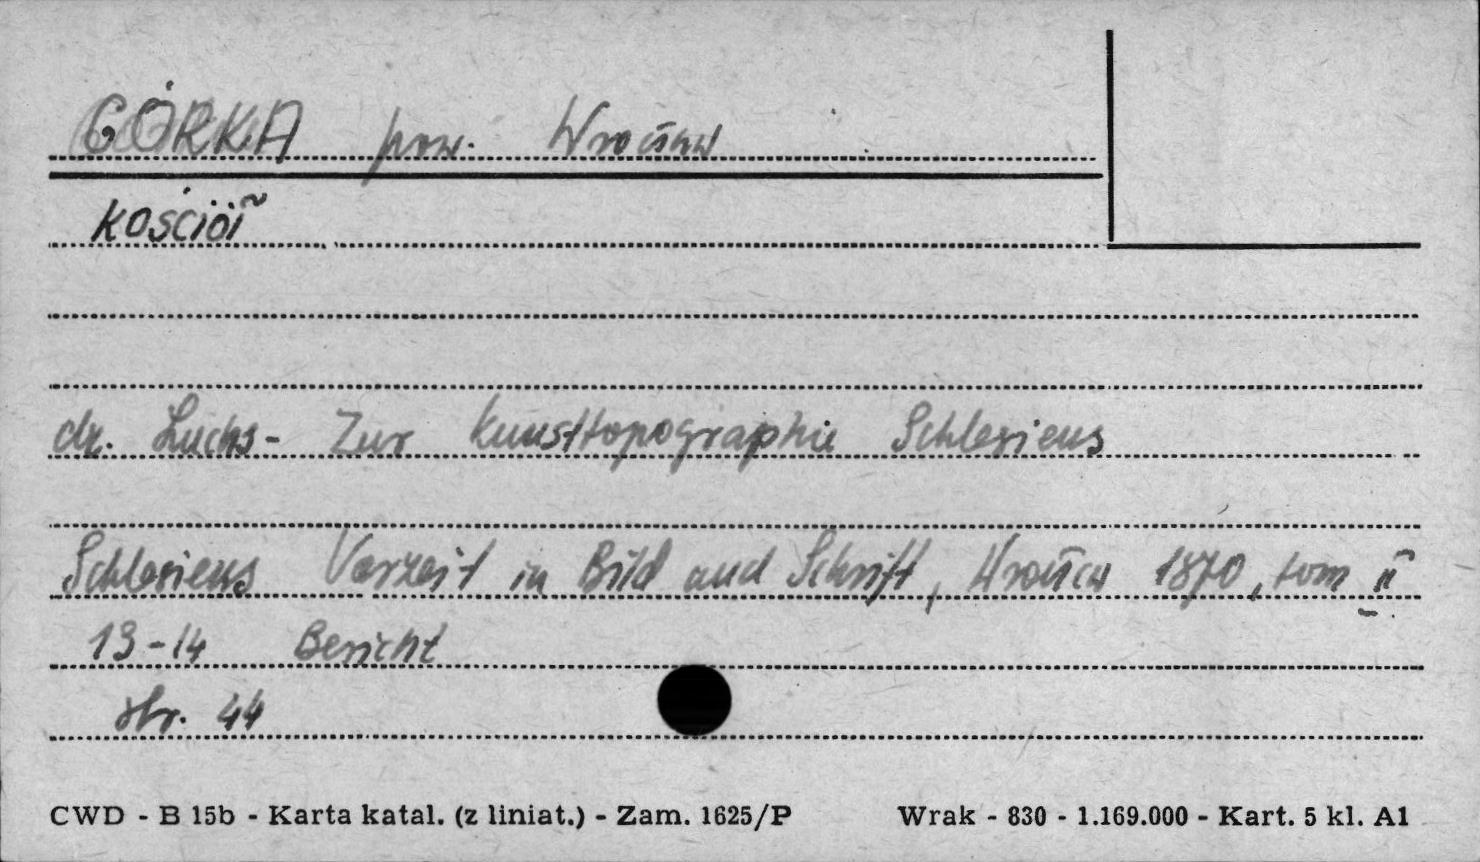 GÓRKA pow. Wrocław
kościół
dr. Luchs - Zur Kunsttopographie Schlesiens
Schlesiens Vorzeit in Bild und Schrift, Wrocław 1870, tom II
13-14 Bericht
str. 44
CWD - B 15b - Karta katal. (z liniat.) - Zam. 1625/P Wrak - 830 - 1.169.000 - Kart. 5 kl. A1